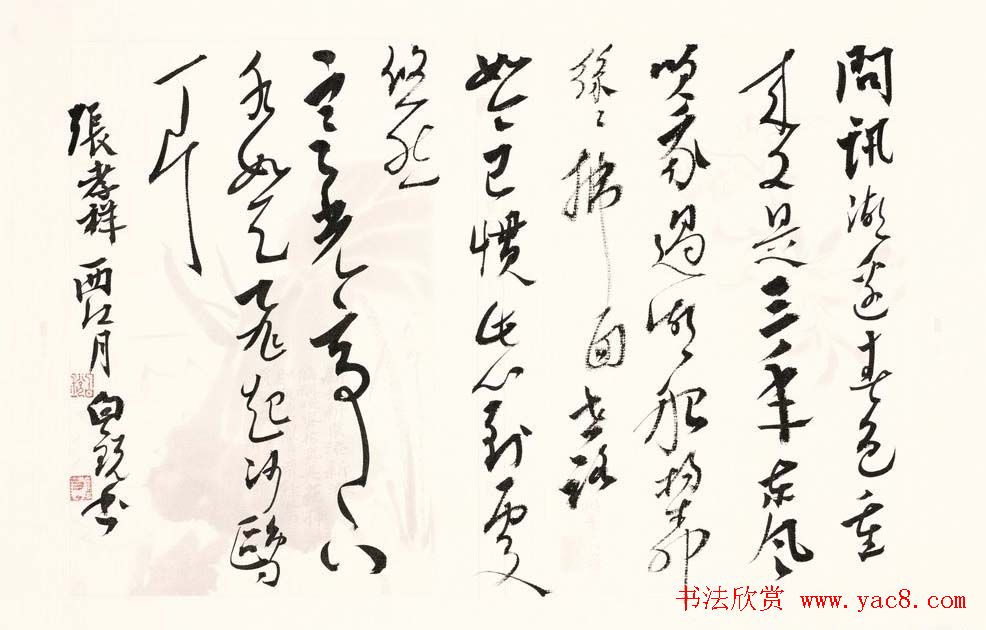 問訊湖邊春色重
来又是三年东风
吹我過湖船楊柳
絲絲拂面世路
如今已慣此心到處
悠然
寒光亭下
水如天飛起沙鷗
一片
張孝祥 西江月 白锐书
书法欣赏 www.yac8.com